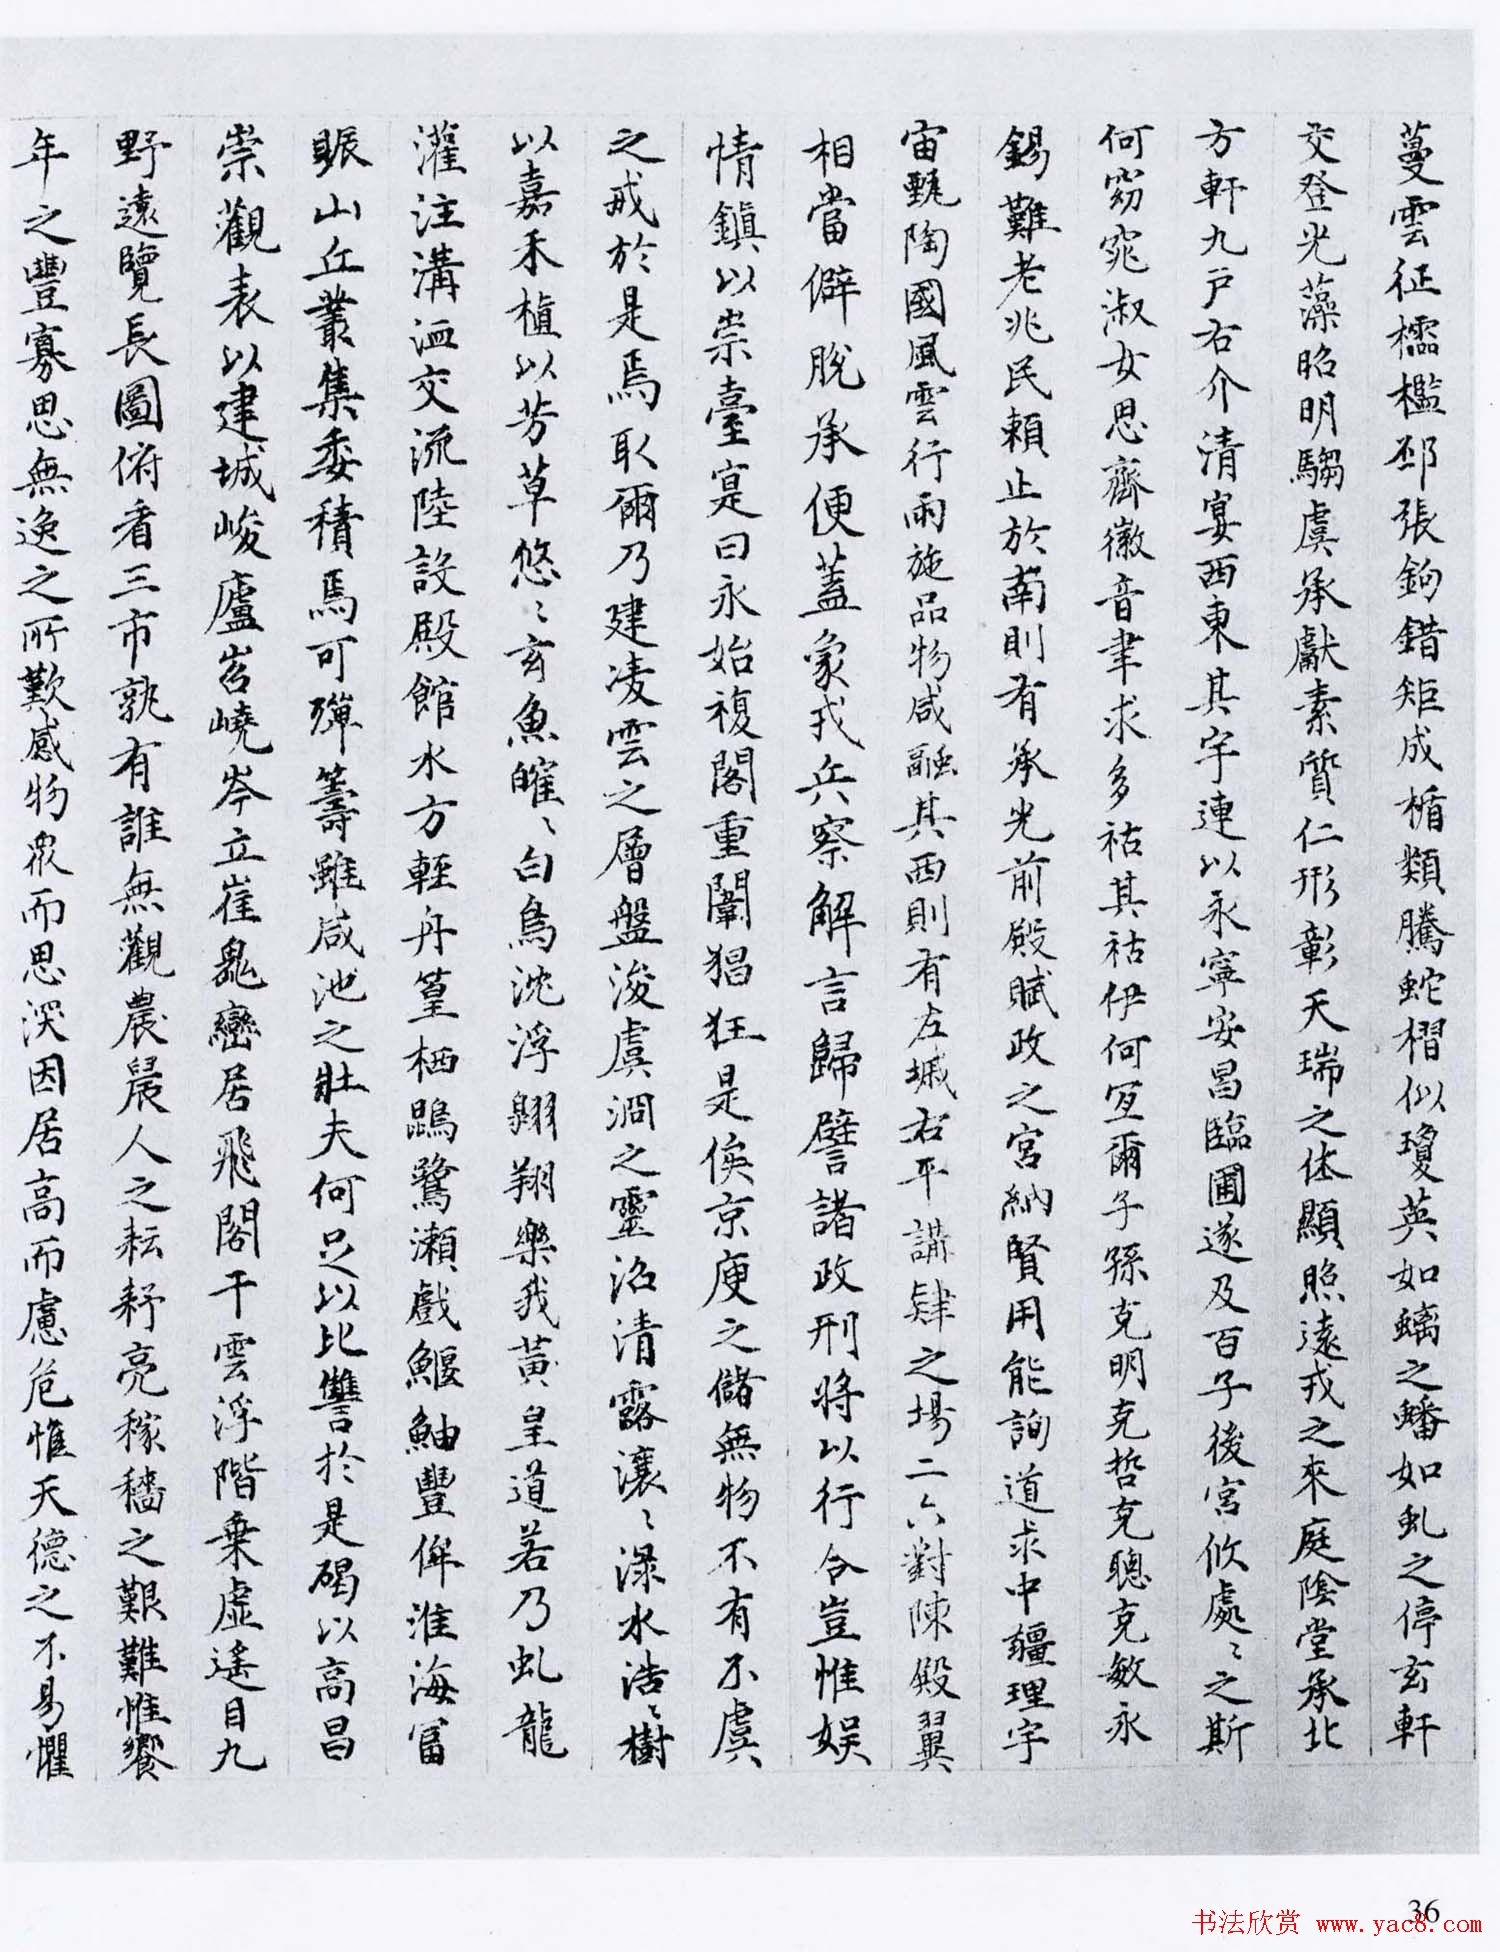 蔓雲征櫺檻邳張鉤錯矩成楯類騰蛇槢似瓊英如螭之蟠如虬之停玄軒
交登光藻昭明騶虞承獻素質仁形彰天瑞之休顯照遠戎之來庭陰堂承北
方軒九户右介清宴西東其宇連以永寧安昌臨圃遂及百子後宮攸處〻之斯
何窈窕淑女思齊徽音聿求多祜其祜伊何宜爾子孫克明克哲克聰克敏永
錫難老兆民賴止於南則有承光前殿賦政之宮納賢用能詢道求中疆理宇
宙甄陶國風雲行雨施品物咸融其西則有左墄右平講肄之場二六對陳殿翼
相當僻脫承便蓋象戎兵察解言歸譬諸政刑將以行令豈惟娛
情鎮以崇臺寔曰永始複閣重闈猖狂是俟京庾之儲無物不有不虞
之戒於是焉取爾乃建凌雲之層盤浚虞淵之靈沼清露瀼〻渌水浩〻樹
以嘉禾植以芳草悠〻玄魚皠〻白鳥沈浮翱翔樂我黃皇道若乃虬龍
灌注溝洫交流陸設殿館水方輕舟篁栖鵾鷺瀨戲鰋鮋豐侔淮海富
賑山丘叢集委積焉可殫籌雖咸池之壯夫何足以比讐於是碣以高昌
崇觀表以建城峻廬岧嶢岑立崔嵬巒居飛閣干雲浮階乗虛遙目九
野遠覽長圖俯看三市孰有誰無觀農晨人之耘耔亮稼穡之艱難惟饗
年之豐寡思無逸之所歎感物衆而思深因居高而慮危惟天德之不易懼
36
书法欣赏 www.yac8.com